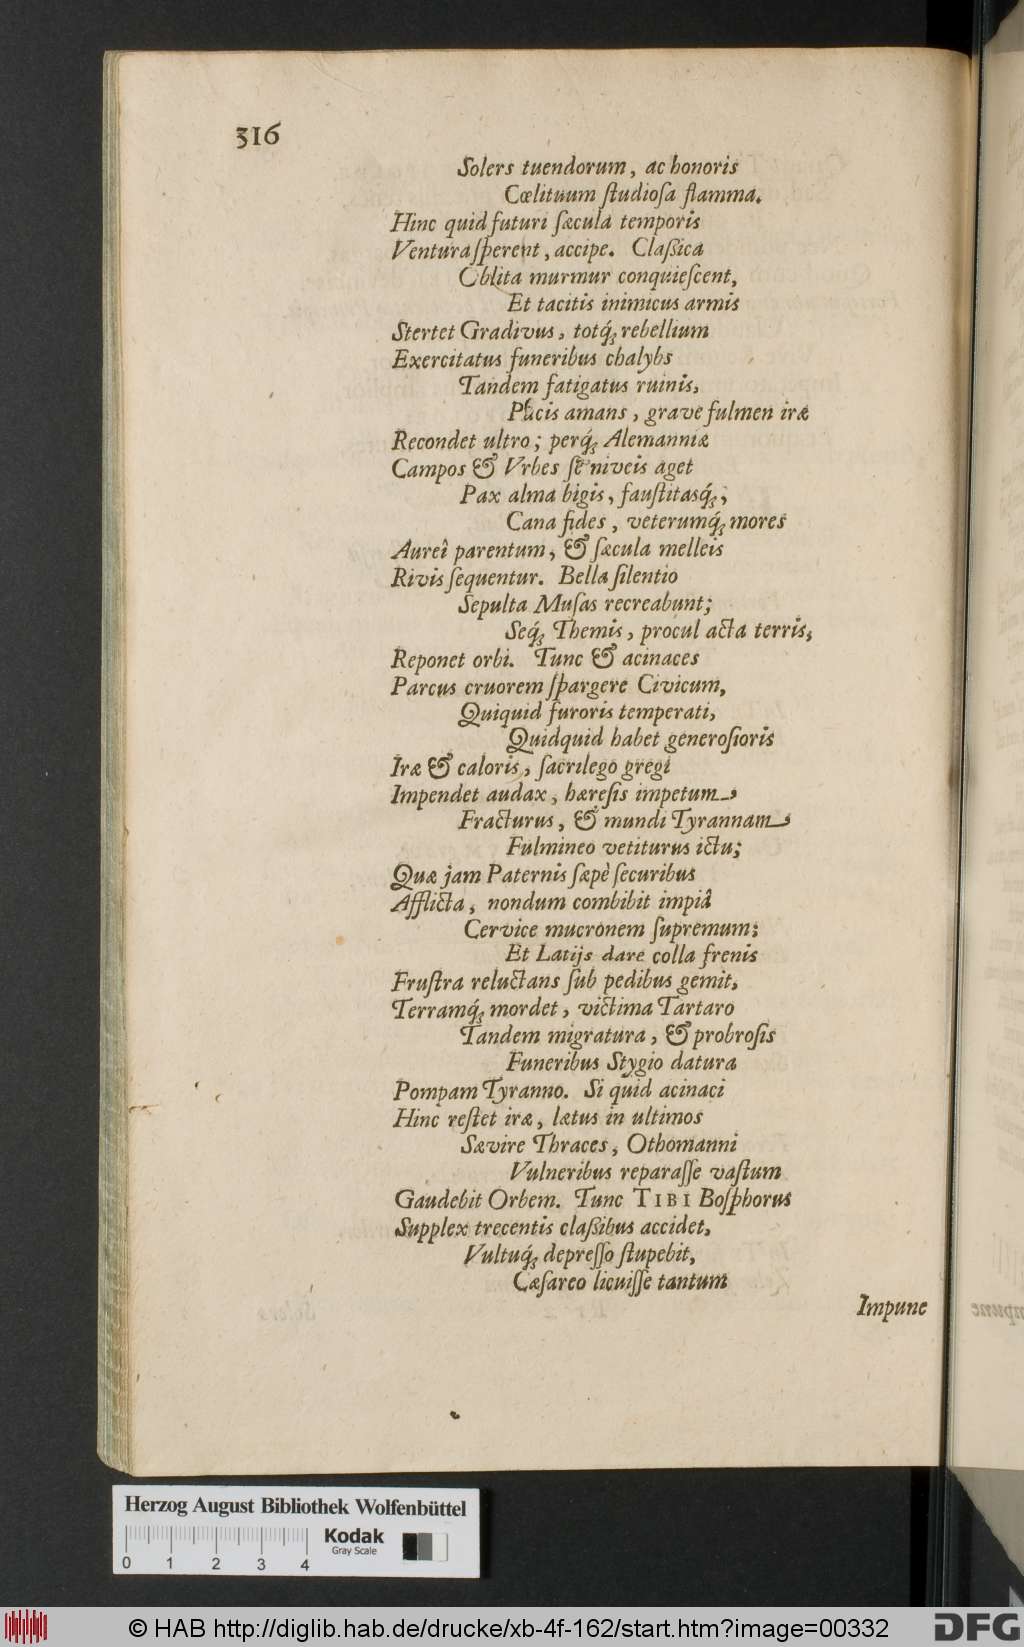 316
Solers tuendorum, ac honoris
Cœlituum ſtudioſa flamma.
Hinc quid futuri ſæcula temporis
Ventura ſperent, accipe. Claßica
Oblita murmur conquieſcent,
Et tacitis inimicus armis
Stertet Gradivus, totq́; rebellium
Exercitatus funeribus chalybs
Tandem fatigatus ruinis,
Pacis amans, grave fulmen iræ
Recondet ultro; perq́; Alemanniæ
Campos & Vrbes ſe niveis aget
Pax alma bigis, fauſtitasq́;,
Cana fides, veterumq́; mores
Aurei parentum, & ſæcula melleis
Rivis ſequentur. Bella ſilentio
Sepulta Muſas recreabunt;
Seq́; Themis, procul acta terris,
Reponet orbi. Tunc & acinaces
Parcus cruorem ſpargere Civicum,
Quiquid furoris temperati,
Quidquid habet generoſioris
Iræ & caloris, ſacrilego gregi
Impendet audax, hæreſis impetum
Fracturus, & mundi Tyrannam
Fulmineo vetiturus ictu;
Quæ jam Paternis ſæpè ſecuribus
Afflicta, nondum combibit impiâ
Cervice mucronem ſupremum;
Et Latijs dare colla frenis
Fruſtra reluctans ſub pedibus gemit,
Terramq́; mordet, victima Tartaro
Tandem migratura, & probroſis
Funeribus Stygio datura
Pompam Tyranno. Si quid acinaci
Hinc reſtet iræ, lætus in ultimos
Sævire Thraces, Othomanni
Vulneribus reparaſſe vaſtum
Gaudebit Orbem. Tunc TIBI Boſphorus
Supplex trecentis claßibus accidet,
Vultuq́; depreſſo ſtupebit,
Cæſareo licuiſſe tantum
Impune
Herzog August Bibliothek Wolfenbüttel
Kodak
Gray Scale
0 1 2 3 4
© HAB http://diglib.hab.de/drucke/xb-4f-162/start.htm?image=00332
DFG